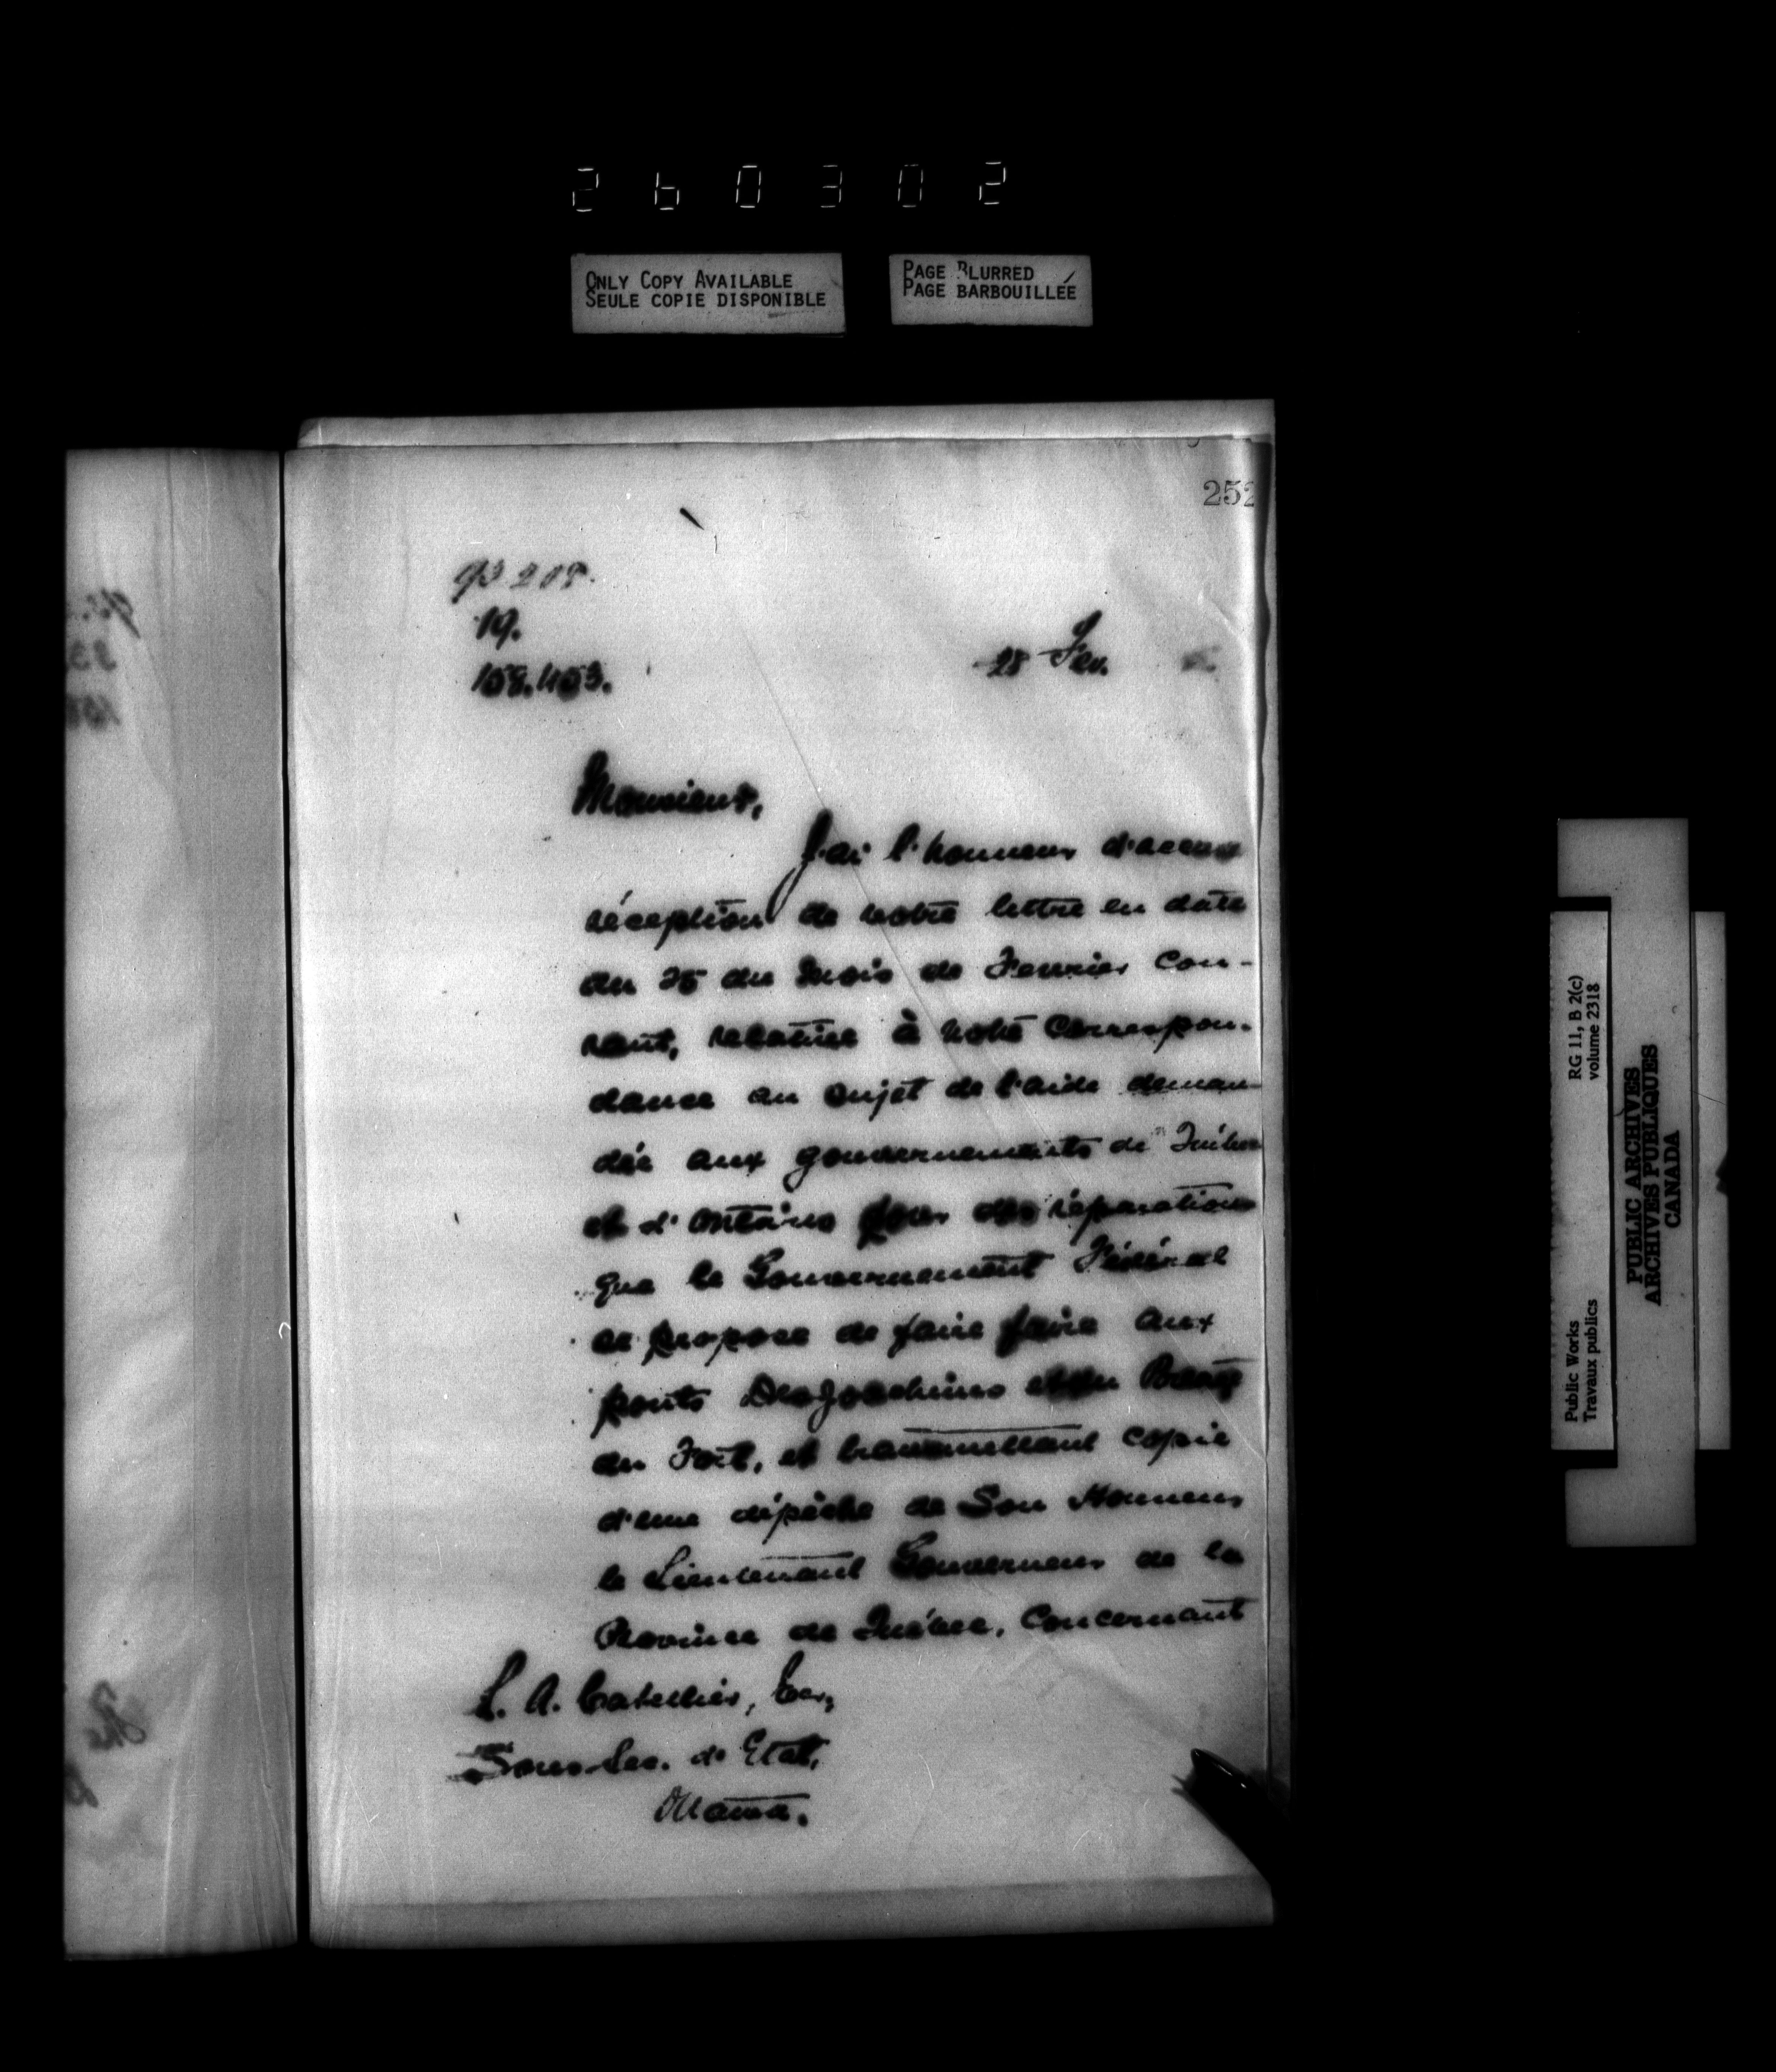 260302
ONLY COPY AVAILABLE
SEULE COPIE DISPONIBLE
PAGE BLURRED
PAGE BARBOUILLÉE
252
19.
28 Fev.
Monsieur,
J'ai l'honneur d'accuser
réception de votre lettre en date
du 25 du mois de Fevrier cou-
rant, relative à votre correspon-
dance au sujet de l'aide deman-
dée aux gouvernements de Québec
et d'Ontario pour des réparations
que le Gouvernement Fédéral
se propose de faire faire aux
ponts DesJoachims
du Fort, et transmettant copie
d'une dépêche de Son Honneur
le Lieutenant Gouverneur de la
Province de Québec, concernant
L. A. Catellier, Ecr,
Sous-Sec. d'Etat,
Ottawa.
Public Works
Travaux publics
RG 11, B 2(c)
volume 2318
PUBLIC ARCHIVES
ARCHIVES PUBLIQUES
CANADA